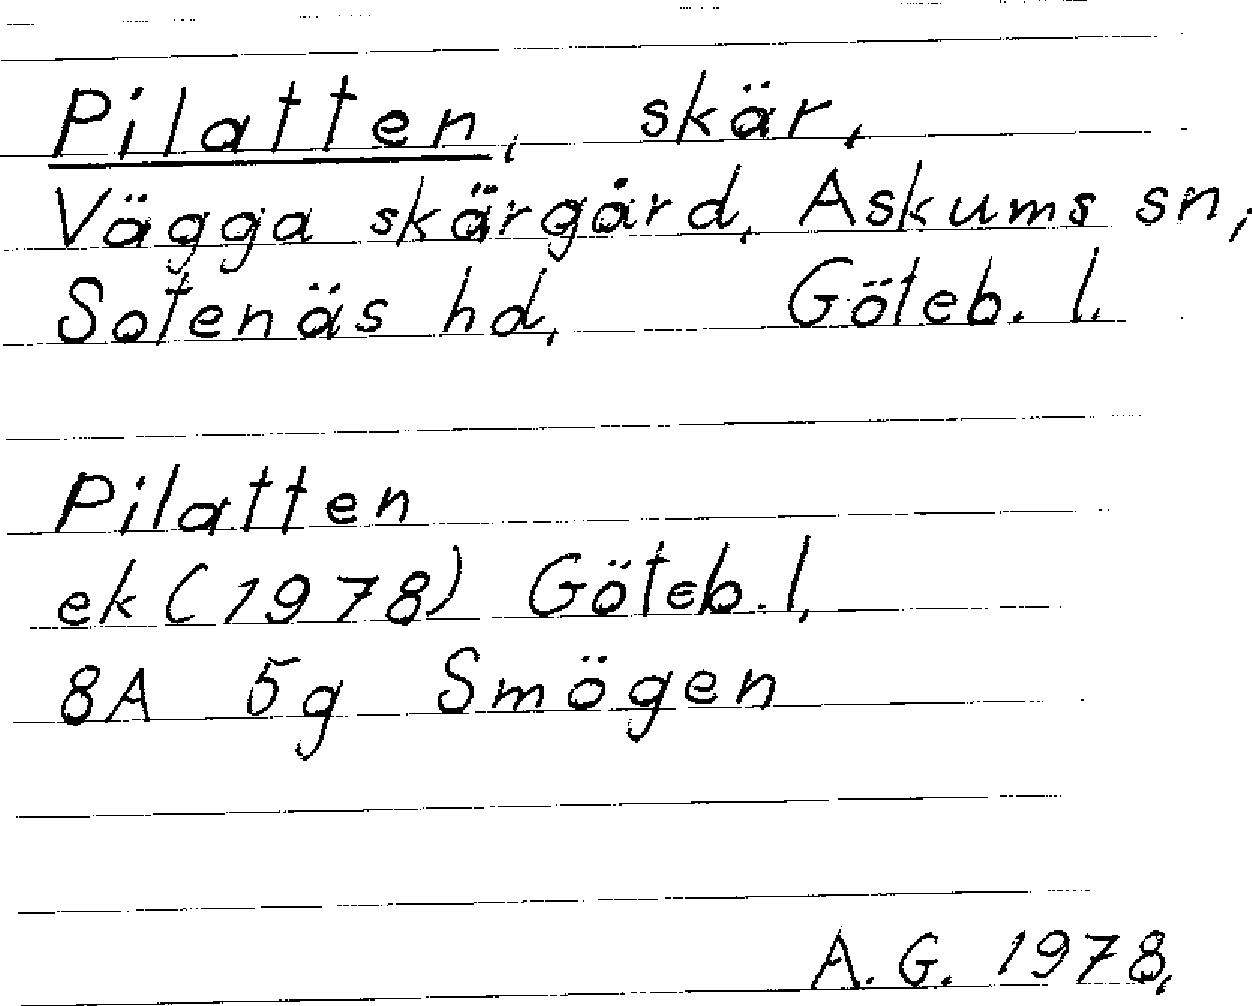 Pilatten, skär,
Vägga skärgård, Askums sn,
Sotenäs hd, Göteb. l.
Pilatten
ek (1978) Göteb. l,
8A 5g Smögen
A. G. 1978,